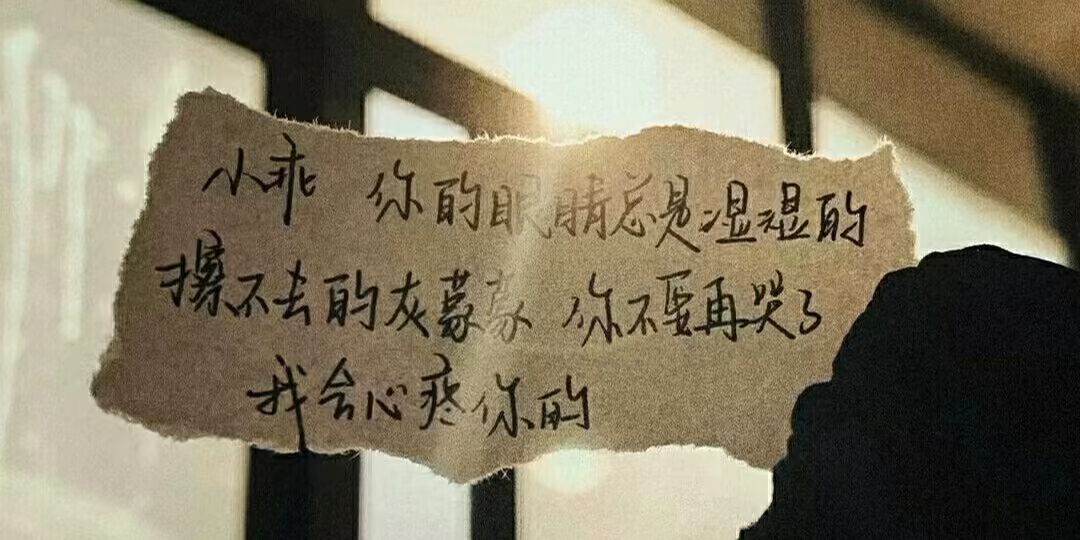 小乖 你的眼睛总是湿湿的
擦不去的灰蒙蒙 你不要再哭了
我会心疼你的